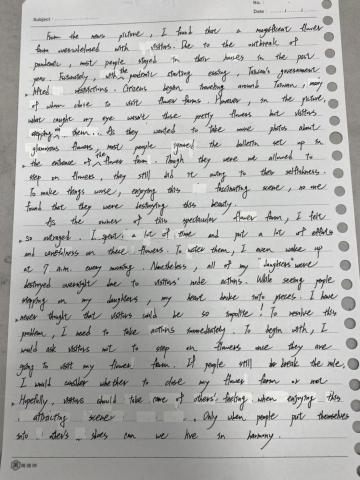 No. :
Subject : Date : / /
From the news picture, I found that a magnificent flower
farm overwhelmed with visitors. Due to the outbreak of
pandemic, most people stayed in their houses in the past
year. Fortunately, with the pandemic starting easing, Taiwan's government
lifted restrictions. Citizens began traveling around Taiwan, many
of whom chose to visit flower farms. However, in the picture,
what caught my eye wasn't those pretty flowers but visitors
stepping on them. As they wanted to take more photos about
glamorous flowers, most people ignored the bulletin set up in
the entrance of the flower farm. Though they were not allowed to
step on flowers, they still did it owing to their selfishness.
To make things worse, enjoying this fascinating scene, no one
found that they were destroying this beauty.
As the owner of this spectacular flower farm, I felt
so outraged. I spent a lot of time and put a lot of efforts
and carefulness on these flowers. To water them, I even woke up
at 7 a.m. every morning. Nonetheless, all of my "daughters" were
destroyed overnight due to visitors' rude actions. While seeing people
stepping on my daughters, my heart broke into pieces. I have
never thought that visitors could be so impolite! To resolve this
problem, I need to take actions immediately. To begin with, I
would ask visitors not to step on flowers once they are
going to visit my flower farm. If people still break the rule,
I would consider whether to close my flower farm or not.
Hopefully, visitors should take care of others' feeling when enjoying this
attracting scene. Only when people put themselves
into other's shoes can we live in harmony.